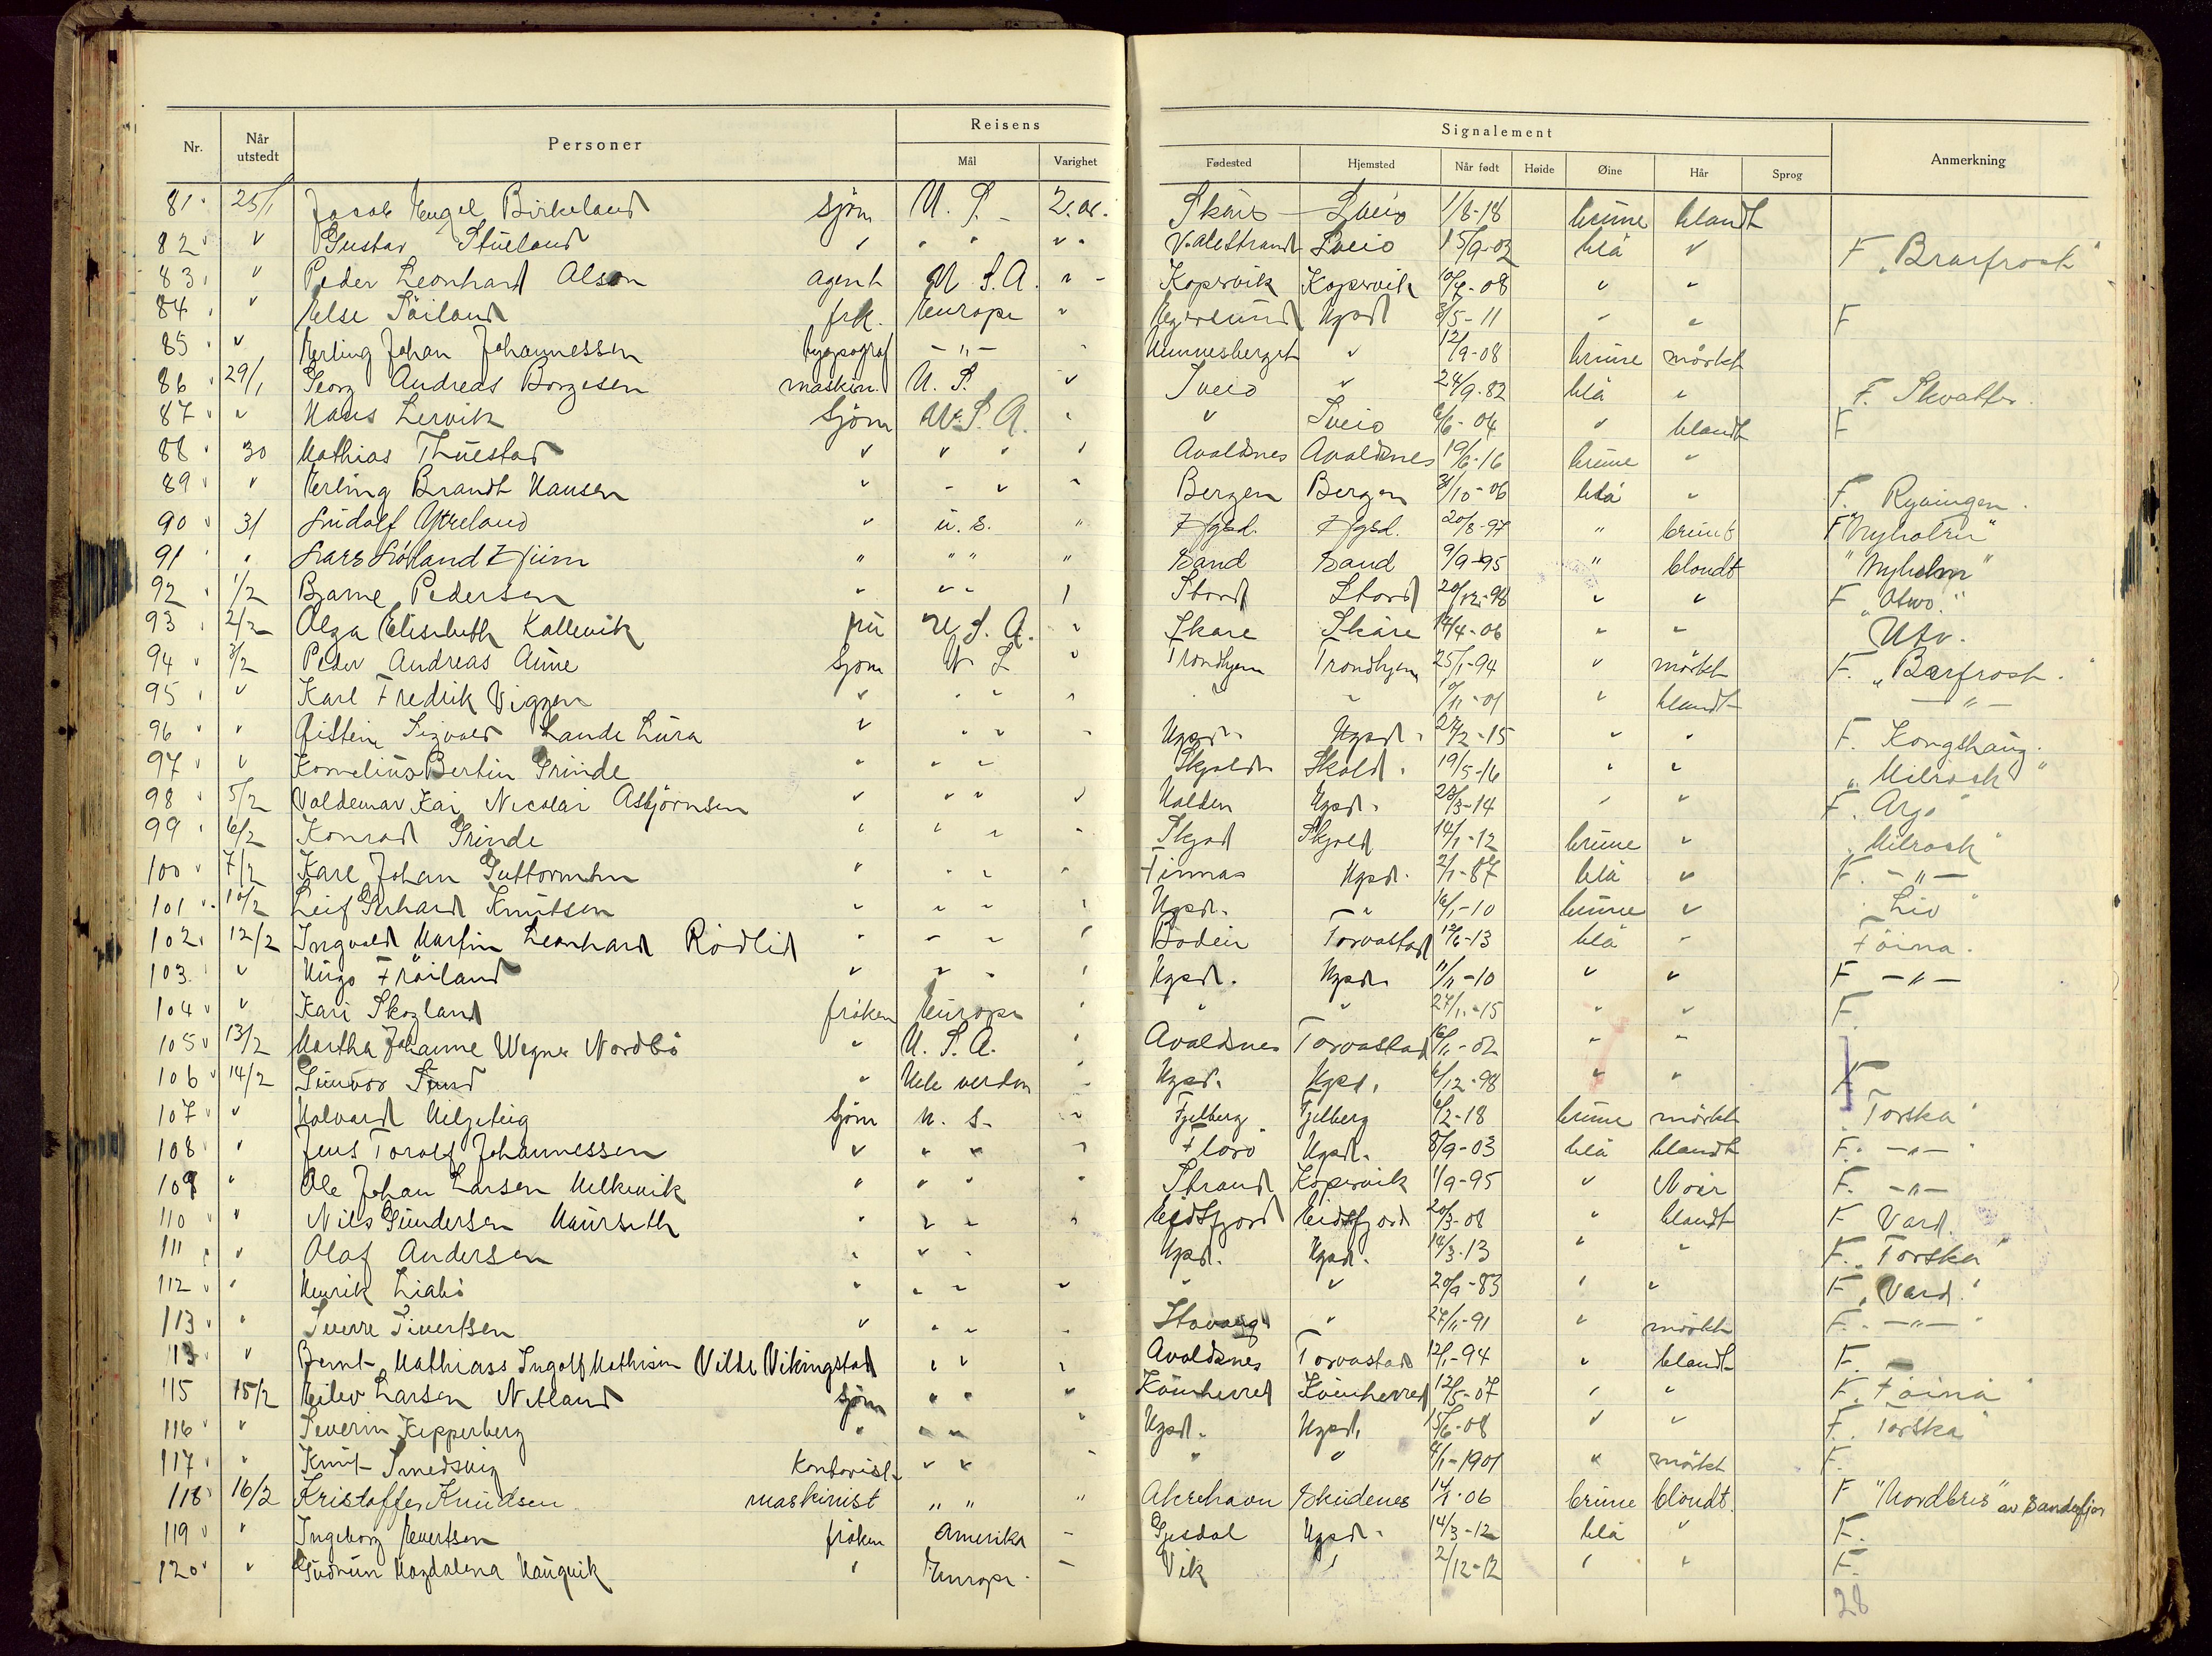 Nr. Når utstedt Personer Reisens Mål Varighet Signalement Fødested Hjemsted Når født Høide Øine Hår Sprog Anmerkning
81 25/1 Jacob Birkeland sjöm U. S. 2. år. Skåre Sveio 1/8-18 brune blondt
82 " Gustav Stueland " " " " " Valestrand Sveio 15/9-02 blå " F
83 " Peder Leonhard Olson agent U S. A. " " Kopervik Kopervik 10/4-08 " "
84 " Else Söiland frk. Europa " Egersund Hgsd 3/5-11 " " F
85 " Erling Johan Johannessen typograf -"- " " 12/9-08 brune mörkt
86 29/1 Georg Andreas Borgesen maskin. U. S. " Sveio " 24/9-82 blå " F.
87 " Hans Lervik Sjöm U. S. A. " " Sveio 6/6-04 " blondt F
88 30 Mathias Thuestad " " " " Avaldsnes Avaldsnes 19/6-16 brune "
89 " Erling Brandt Hansen " " " " Bergen Bergen 31/10-06 blå " F. Ryvingen.
90 31 Ludolf Ytreland " u. s. " Hgsd. Hgsd. 20/8-97 " brunt F "Nyholm"
91 " Lars Lötland Hjiim " " " " Sand Sand 9/9-95 " blondt "Nyholm"
92 1/2 Bjarne Pedersen " " " " Stord Stord 20/12-98 " " F
93 2/2 Olga Elisabeth Kallevik U. S. A. " Skåre Skåre 14/4-06 " " Utv.
94 3/2 Peder Andreas Aune Sjöm U S " Trondhjem Trondhjem 25/1-94 " mörkt F. "Barfrost"
95 " Karl Fredrik Viggen " " " " " " 10/11-01 " blondt -"-
96 " Øistein Sigvald Lande Lura " " " " Hgsd. Hgsd. 27/2-15 " " F. Kongshaug.
97 " Kornelius Bertin Grinde " " " Skjold Skold. 19/5-16 " " "Milrosk"
98 5/2 Valdemar Kai Nicolai Asbjörnsen " " " " Halden Hgsd. 28/3-14 " " F. Argo
99 6/2 Konrad Grinde " " " " Skjod Skjold 14/1-12 brune " Milrosk
100 7/2 Karl Johan Guttormsen " " " " Finnas Hgsd. 2/1-87 blå " F. -"-
101 10/2 Leif Gerhard Knutsen " " " " Hgsd. " 16/1-10 brune " Liv
102 12/2 Ingvald Martin Leonhard Rödlid " " " " Torvastad 12/6-13 blå " Föina.
103 " Hugo Fröiland " " " " Hgsd. Hgsd. 11/11-10 " " F -"-
104 " Kari Skogland fröken Europa " " " 27/1-15 " " F.
105 13/2 Martha Johanne Wegner Nordbö " U. S. A. " Avaldsnes Torvastad 16/11-02 " "
106 14/2 Gunvor Sund " Hele verden " Hgsd. Hgsd. 6/12-98 " " F
107 " Halvard sjöm U. S. " Fjelberg Fjelberg 6/2-18 brune mörkt "Torska"
108 " Jens Torolf Johannessen " " " " Florö Hgsd. 8/9-03 blå blondt F. -"-
109 " Ole Johan Larsen Melkevik " " " " Strand Kopervik 1/9-95 " Noir F. -"-
110 " Nils Gundersen Maurseth " " " " Eidsfjord Eidsfjord 20/3-08 " blondt F Vard.
111 " Olaf Andersen " " " Hgsd. Hgsd. 14/3-13 " " F. "Torska"
112 " Henrik Liabö " " " " " " 20/9-83 " " F "Vard."
113 " Sverre Sivertsen " " " " Stavang " 27/11-91 " mörkt F. -"-
113 " Bernt Mathiass Ingolf Mathisen Vilde Vikingstad " " " Avaldsnes Torvastad 12/1-94 " blondt F.
115 15/2 Eilev Larsen Netland sjöm " " " Kvinherred Kvinherred 12/5-07 " " F. Föina
116 " Severin Kipperberg " " " " Hgsd. Hgsd. 15/6-08 " " F. Torska
117 " Knut Smedsvig kontorist " " " " " 4/1-1901 " mörkt F.
118 16/2 Kristoffer Knudsen maskinist " " " Akrehavn Skudenes 14/1-06 brune blondt. F "Nordbris" av Sandefjor
119 " Ingeborg Evertsen fröken Amerika " Gjesdal Hgsd. 14/3-12 blå " F.
120 " Gudrun Magdalena Haugvik " Europa " Vik " 2/12-12 " " F.
28